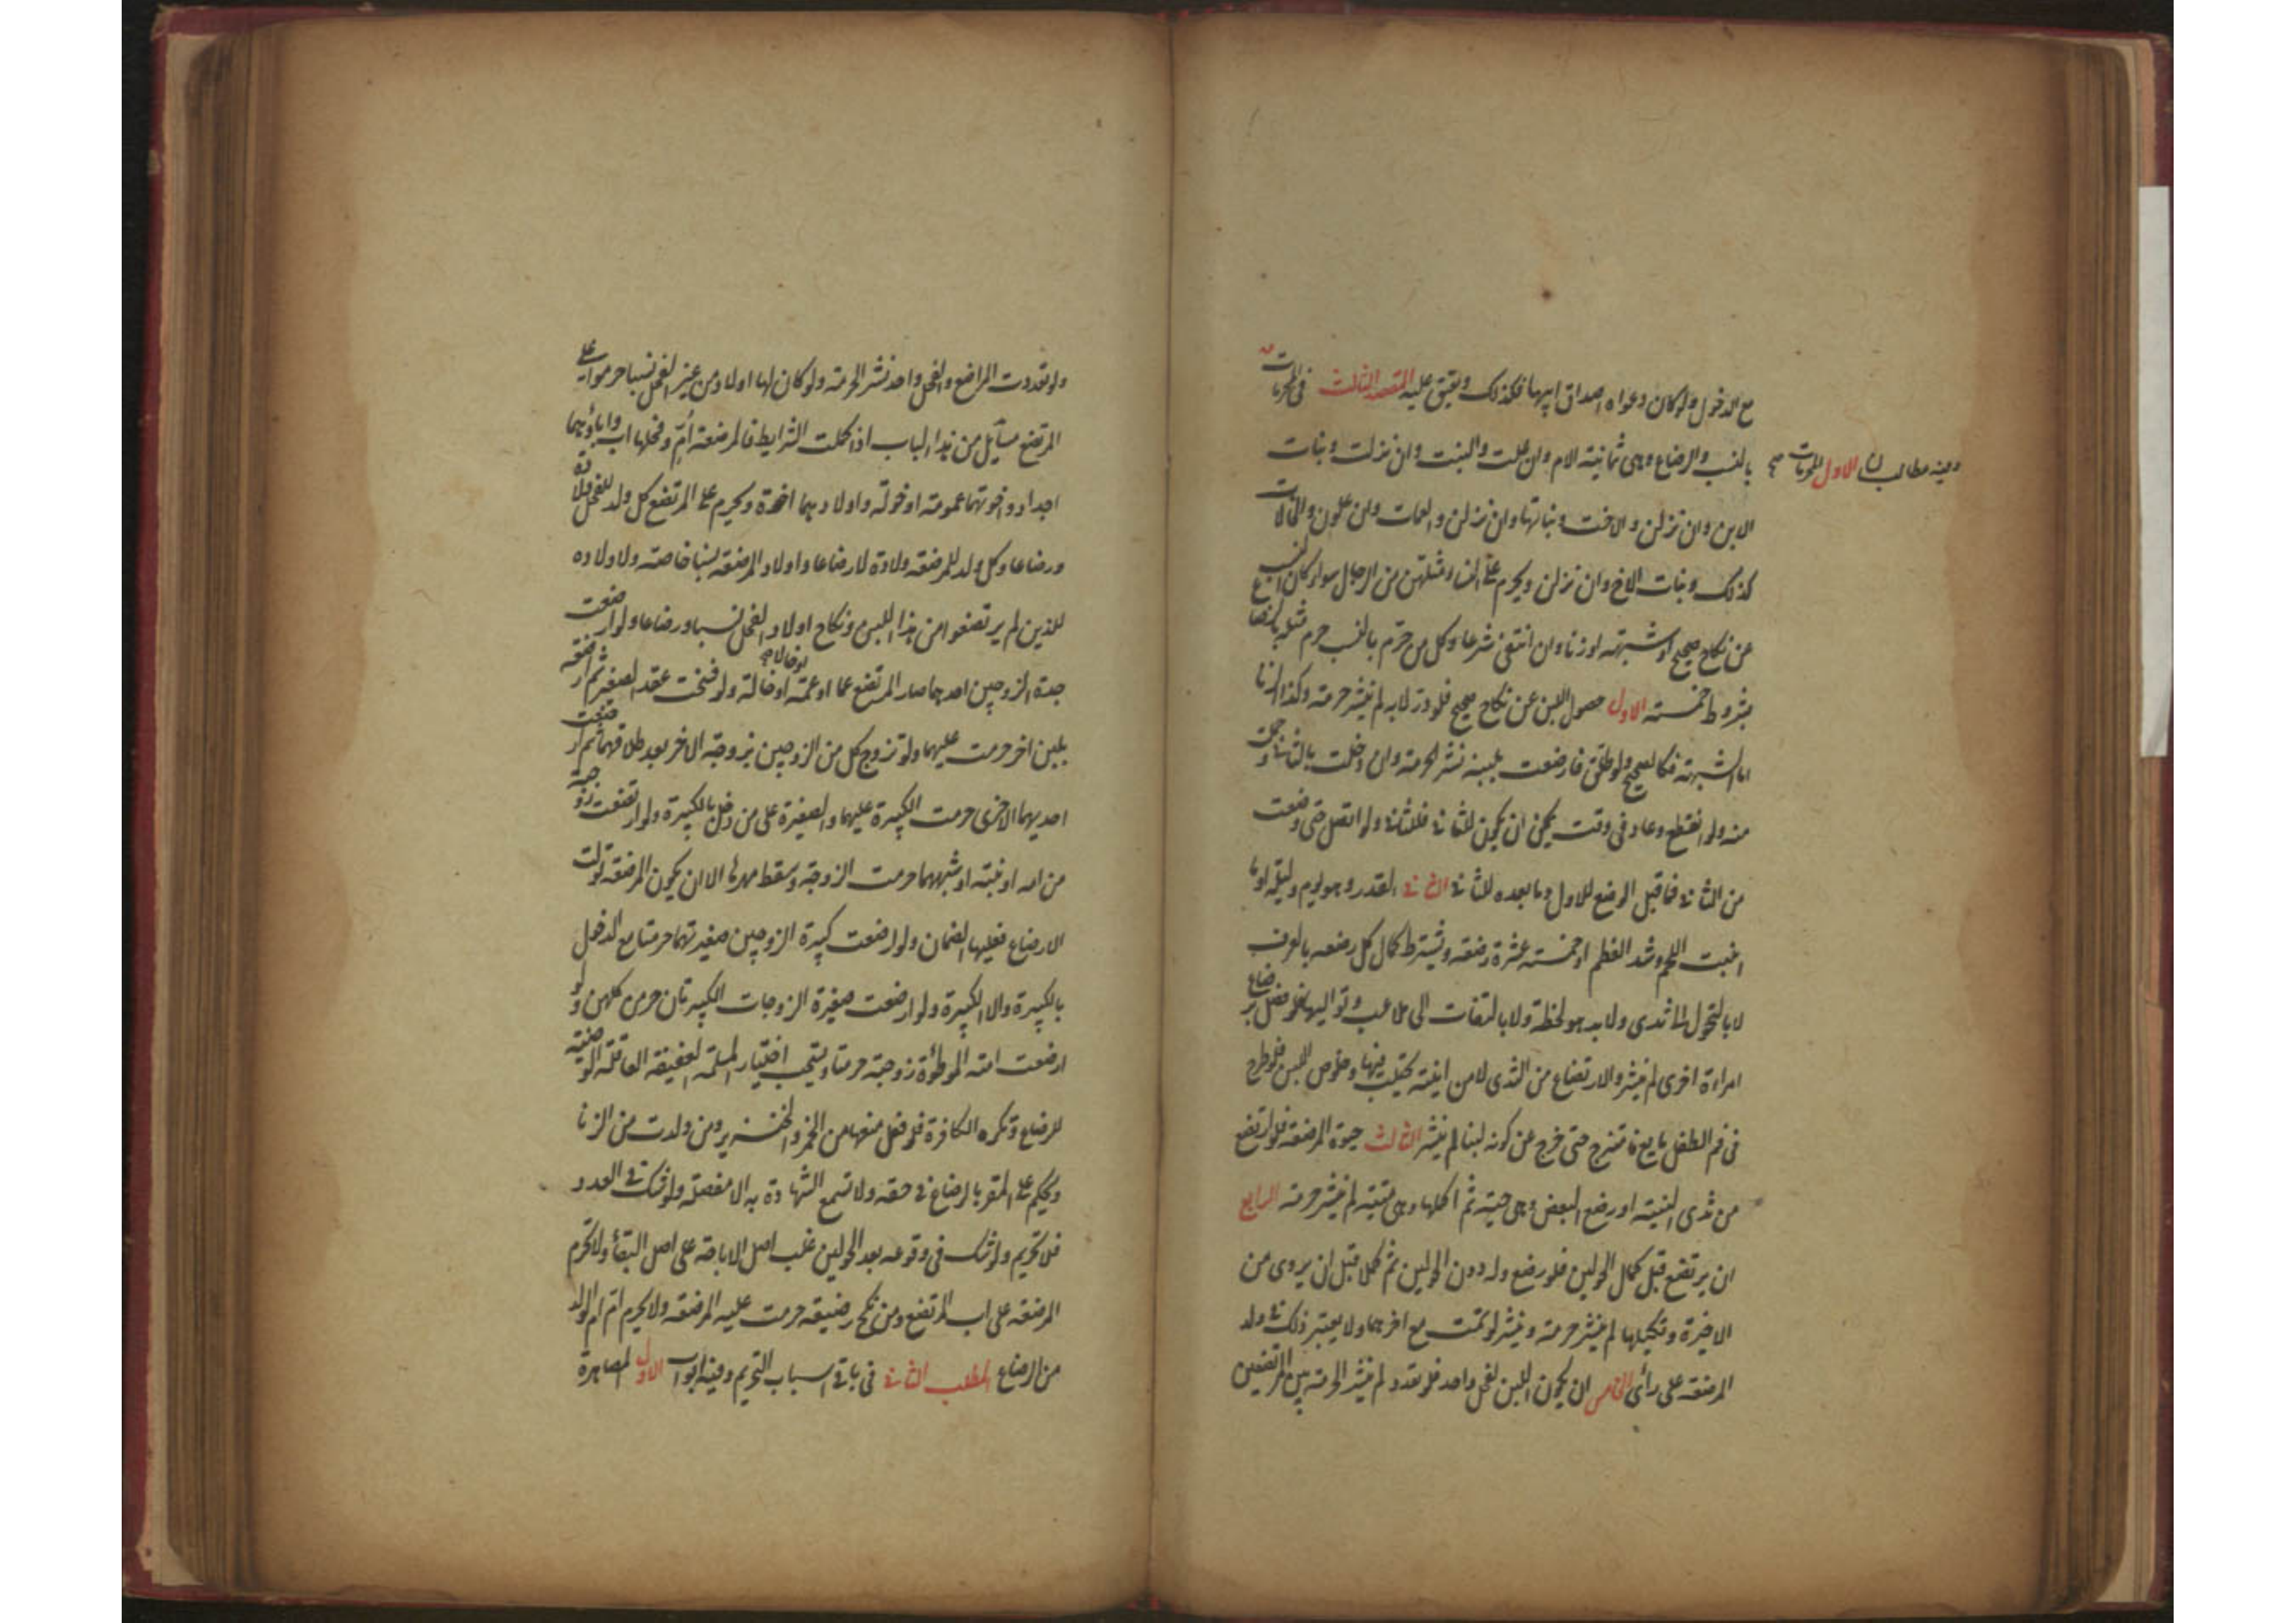 مع الدخول ولو كان دعواه اصداق ابيها فكذلك ويعتق عليه المقصد الثالث في المحرمات
وفيه مطالب الاول المحرمات صح
بالنسب والرضاع وهي ثمانية الام وان علت والبنت وان نزلت وبنات
الابن وان نزلن والاخت وبناتها وان نزلن والعمات وان علون والخالات
كذلك وبنات الاخ وان نزلن ويحرم على النساء مثلهن من الرجال سواء كان النسب
عن نكاح صحيح او شبهة او زنا وان انتفى شرعا وكل من حرم بالنسب حرم مثله بالرضاع
بشروط خمسة الاول حصول اللبن عن نكاح صحيح فلو در لا به لم ينشر حرمة وكذا الزنا
اما الشبهة فكالصحيح ولو طلق فارضعت بلبنه نشر الحرمة وان دخلت بالثاني وحملت
منه ولو انقطع وعاد في وقت يمكن ان يكون للثاني فللثاني ولو اتصل حتى وضعت
من الثاني فما قبل الوضع للاول وما بعده للثاني الثاني القدر وهو يوم وليلة او ما
انبت اللحم وشد العظم او خمسة عشرة رضعة ويشترط كمال كل رضعه بالعرف
لا بالتحول الى ثدي ولا بد هو لحظة ولا بالتفات الى ملاعب وتواليها فلو فصل برضاع
امراءة اخرى لم ينشر والارتضاع من الثدي لا من انية يحتلب فيها وخلوص اللبن فلو طرح
في فم الطفل مايع فامتزج حتى خرج عن كونه لبنا لم ينشر الثالث حيوة المرضعة فلو ارتضع
من ثدي الميتة او رضع البعض وهي حية ثم اكملها وهي ميتة لم ينشر حرمة الرابع
ان يرتضع قبل كمال الحولين فلو رضع وله دون الحولين ثم كملا قبل ان يروى من
الاخيرة وتكميلها لم ينشر حرمة وينشر لو تمت مع اخرهما ولا يعتبر ذلك في ولد
المرضعة على رأى الخامس ان يكون اللبن لفحل واحد فلو تعدد لم ينشر الحرمة بين المرتضعين
ولو تعددت المراضع والفحل واحد نشر الحرمة ولو كان لها اولاد من غير الفحل نسبا حرموا على
المرتضع مسآيل من هذا الباب اذا كملت الشرايط فالمرضعة ام وفحلها اب واباؤهما
اجداد واخوتهما عمومة او خولة واولادهما اخوة ويحرم على المرتضع كل ولد للفحل ولادة
ورضاعا وكل ولد للمرضعة ولادة لا رضاعا واولاد المرضعة نسبا خاصة ولاولاده
للذين لم يرتضعوا من هذا اللبن ونكاح اولاد الفحل نسبا ورضاعا ولو ارضعت
جدة الزوجين احدهما صار المرتضع عما او عمة او خالا صح او خالة ولو فسخت عقد الصغير ثم ارضعته
بلبن اخر حرمت عليهما ولو تزوج كل من الزوجين بزوجة الاخر بعد طلاقهما ثم ارضعت
احديهما الاخرى حرمت الكبيرة عليهما والصغيرة على من دخل بالكبيرة ولو ارتضعت زوجته
من امه او بنته او شبههما حرمت الزوجة وسقط مهرها الا ان يكون المرضعة تولت
الارضاع فعليها الضمان ولو ارضعت كبيرة الزوجين صغيرتهما حرمتا مع الدخول
بالكبيرة والا الكبيرة ولو ارضعت صغيرة الزوجات الكبيرتان حرمن كلهن ولو
ارضعت امته الموطؤة زوجته حرمتا ويستحب اختيار المسلمة العفيفة العاقلة الوضيئة
للرضاع وتكره الكافرة فلو فعل منعها من الخمر والخنزير ومن ولدت من الزنا
ويحكم على المقر بالرضاع في حقه ولا تسمع الشهادة به الا مفصلة ولو شك في العدد
فلا تحريم ولو شك في وقوعه بعد الحولين غلب اصل الاباحة على اصل البقاء ولا تحرم
المرضعة على اب المرتضع ومن نكح رضيعة حرمت عليه المرضعة ولا يحرم ام ام الولد
من الرضاع المطلب الثاني في باقي اسباب التحريم وفيه ابواب الاول المصاهرة